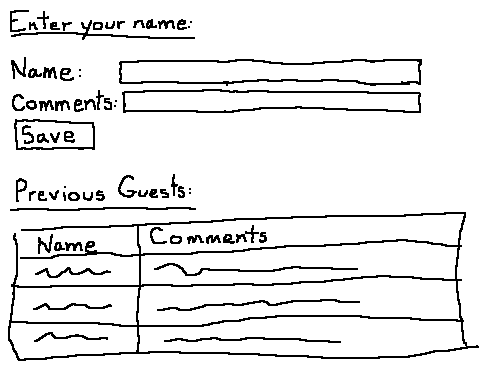 Enter your name:
Name:
Comments:
Save
Previous Guests:
Name Comments